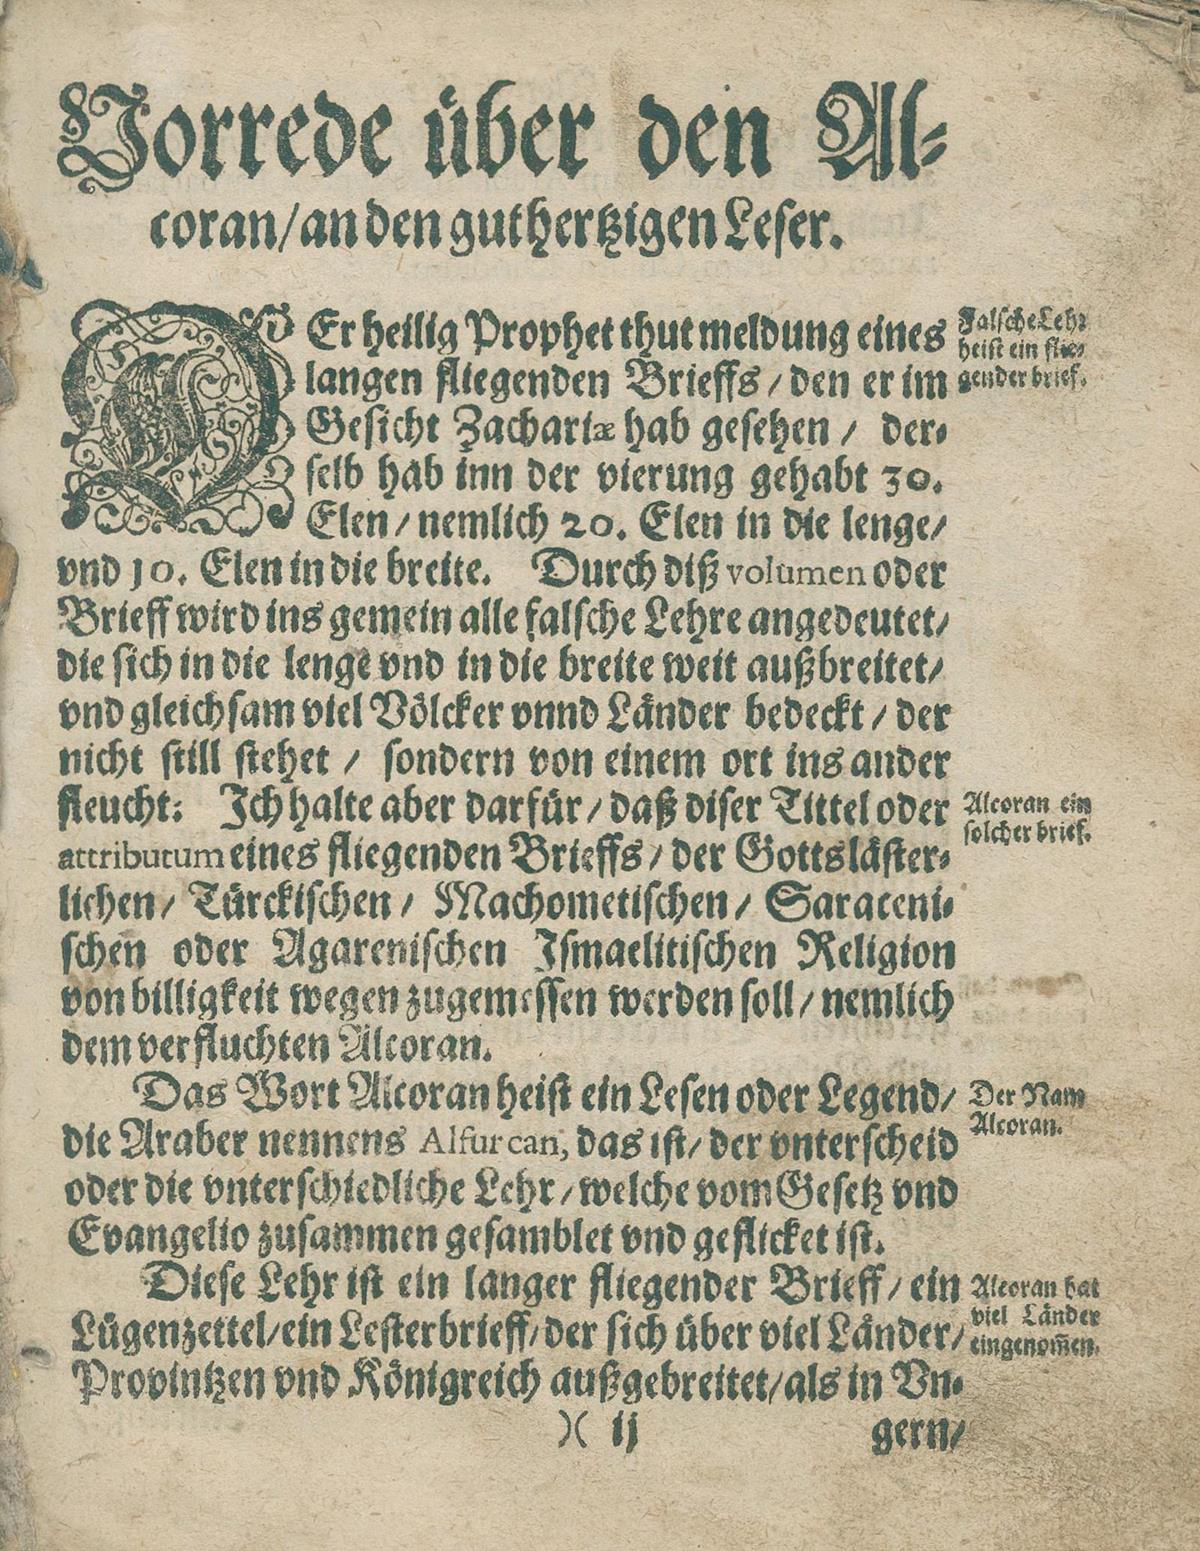 Vorrede über den Al-
coran/ an den guthertzigen Leser.
DEr heilig Prophet thut meldung eines
langen fliegenden Brieffs/ den er im
Gesicht Zachariæ hab gesehen/ der-
selb hab inn der vierung gehabt 30.
Elen/ nemlich 20. Elen in die lenge/
vnd 10. Elen in die breite. Durch diß volumen oder
Brieff wird ins gemein alle falsche Lehre angedeutet/
die sich in die lenge vnd in die breite weit außbreitet/
vnd gleichsam viel Völcker vnnd Länder bedeckt/ der
nicht still stehet/ sondern von einem ort ins ander
fleucht: Ich halte aber darfür/ daß diser Tittel oder
attributum eines fliegenden Brieffs/ der Gottsläster-
lichen/ Türckischen/ Machometischen/ Saraceni-
schen oder Agarenischen Ismaelitischen Religion
von billigkeit wegen zugemessen werden soll/ nemlich
dem verfluchten Alcoran.
Das Wort Alcoran heist ein Lesen oder Legend/
die Araber nennens Alfurcan, das ist/ der vnterscheid
oder die vnterschiedliche Lehr/ welche vom Gesetz vnd
Evangelio zusammen gesamblet vnd geflicket ist.
Diese Lehr ist ein langer fliegender Brieff/ ein
Lügenzettel/ ein Lesterbrieff/ der sich über viel Länder/
Provintzen vnd Königreich außgebreitet/ als in Vn-
)( ij
gern/
Falsche Lehr
heist ein flie-
gender brief.
Alcoran ein
solcher brief.
Der Nam
Alcoran.
Alcoran hat
viel Länder
eingenom̃en.